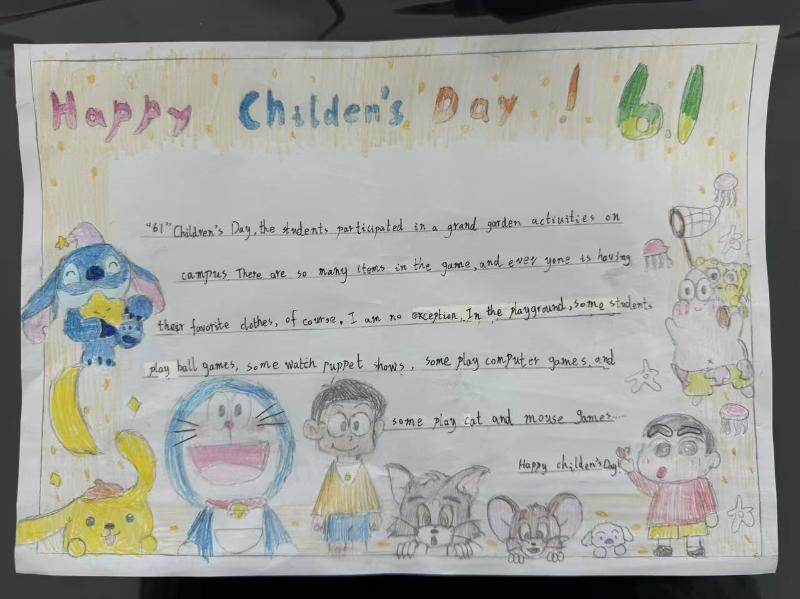 Happy Childen's Day ! 6.1
"61" Children's Day, the students participated in a grand garden activities on
campus. There are so many items in the game, and ever yone is having
their favorite clothes, of course. I am no exception. In the playground, some students
play ball games, some watch puppet shows, some play computer games, and
some play cat and mouse games....
Happy childen's Day!